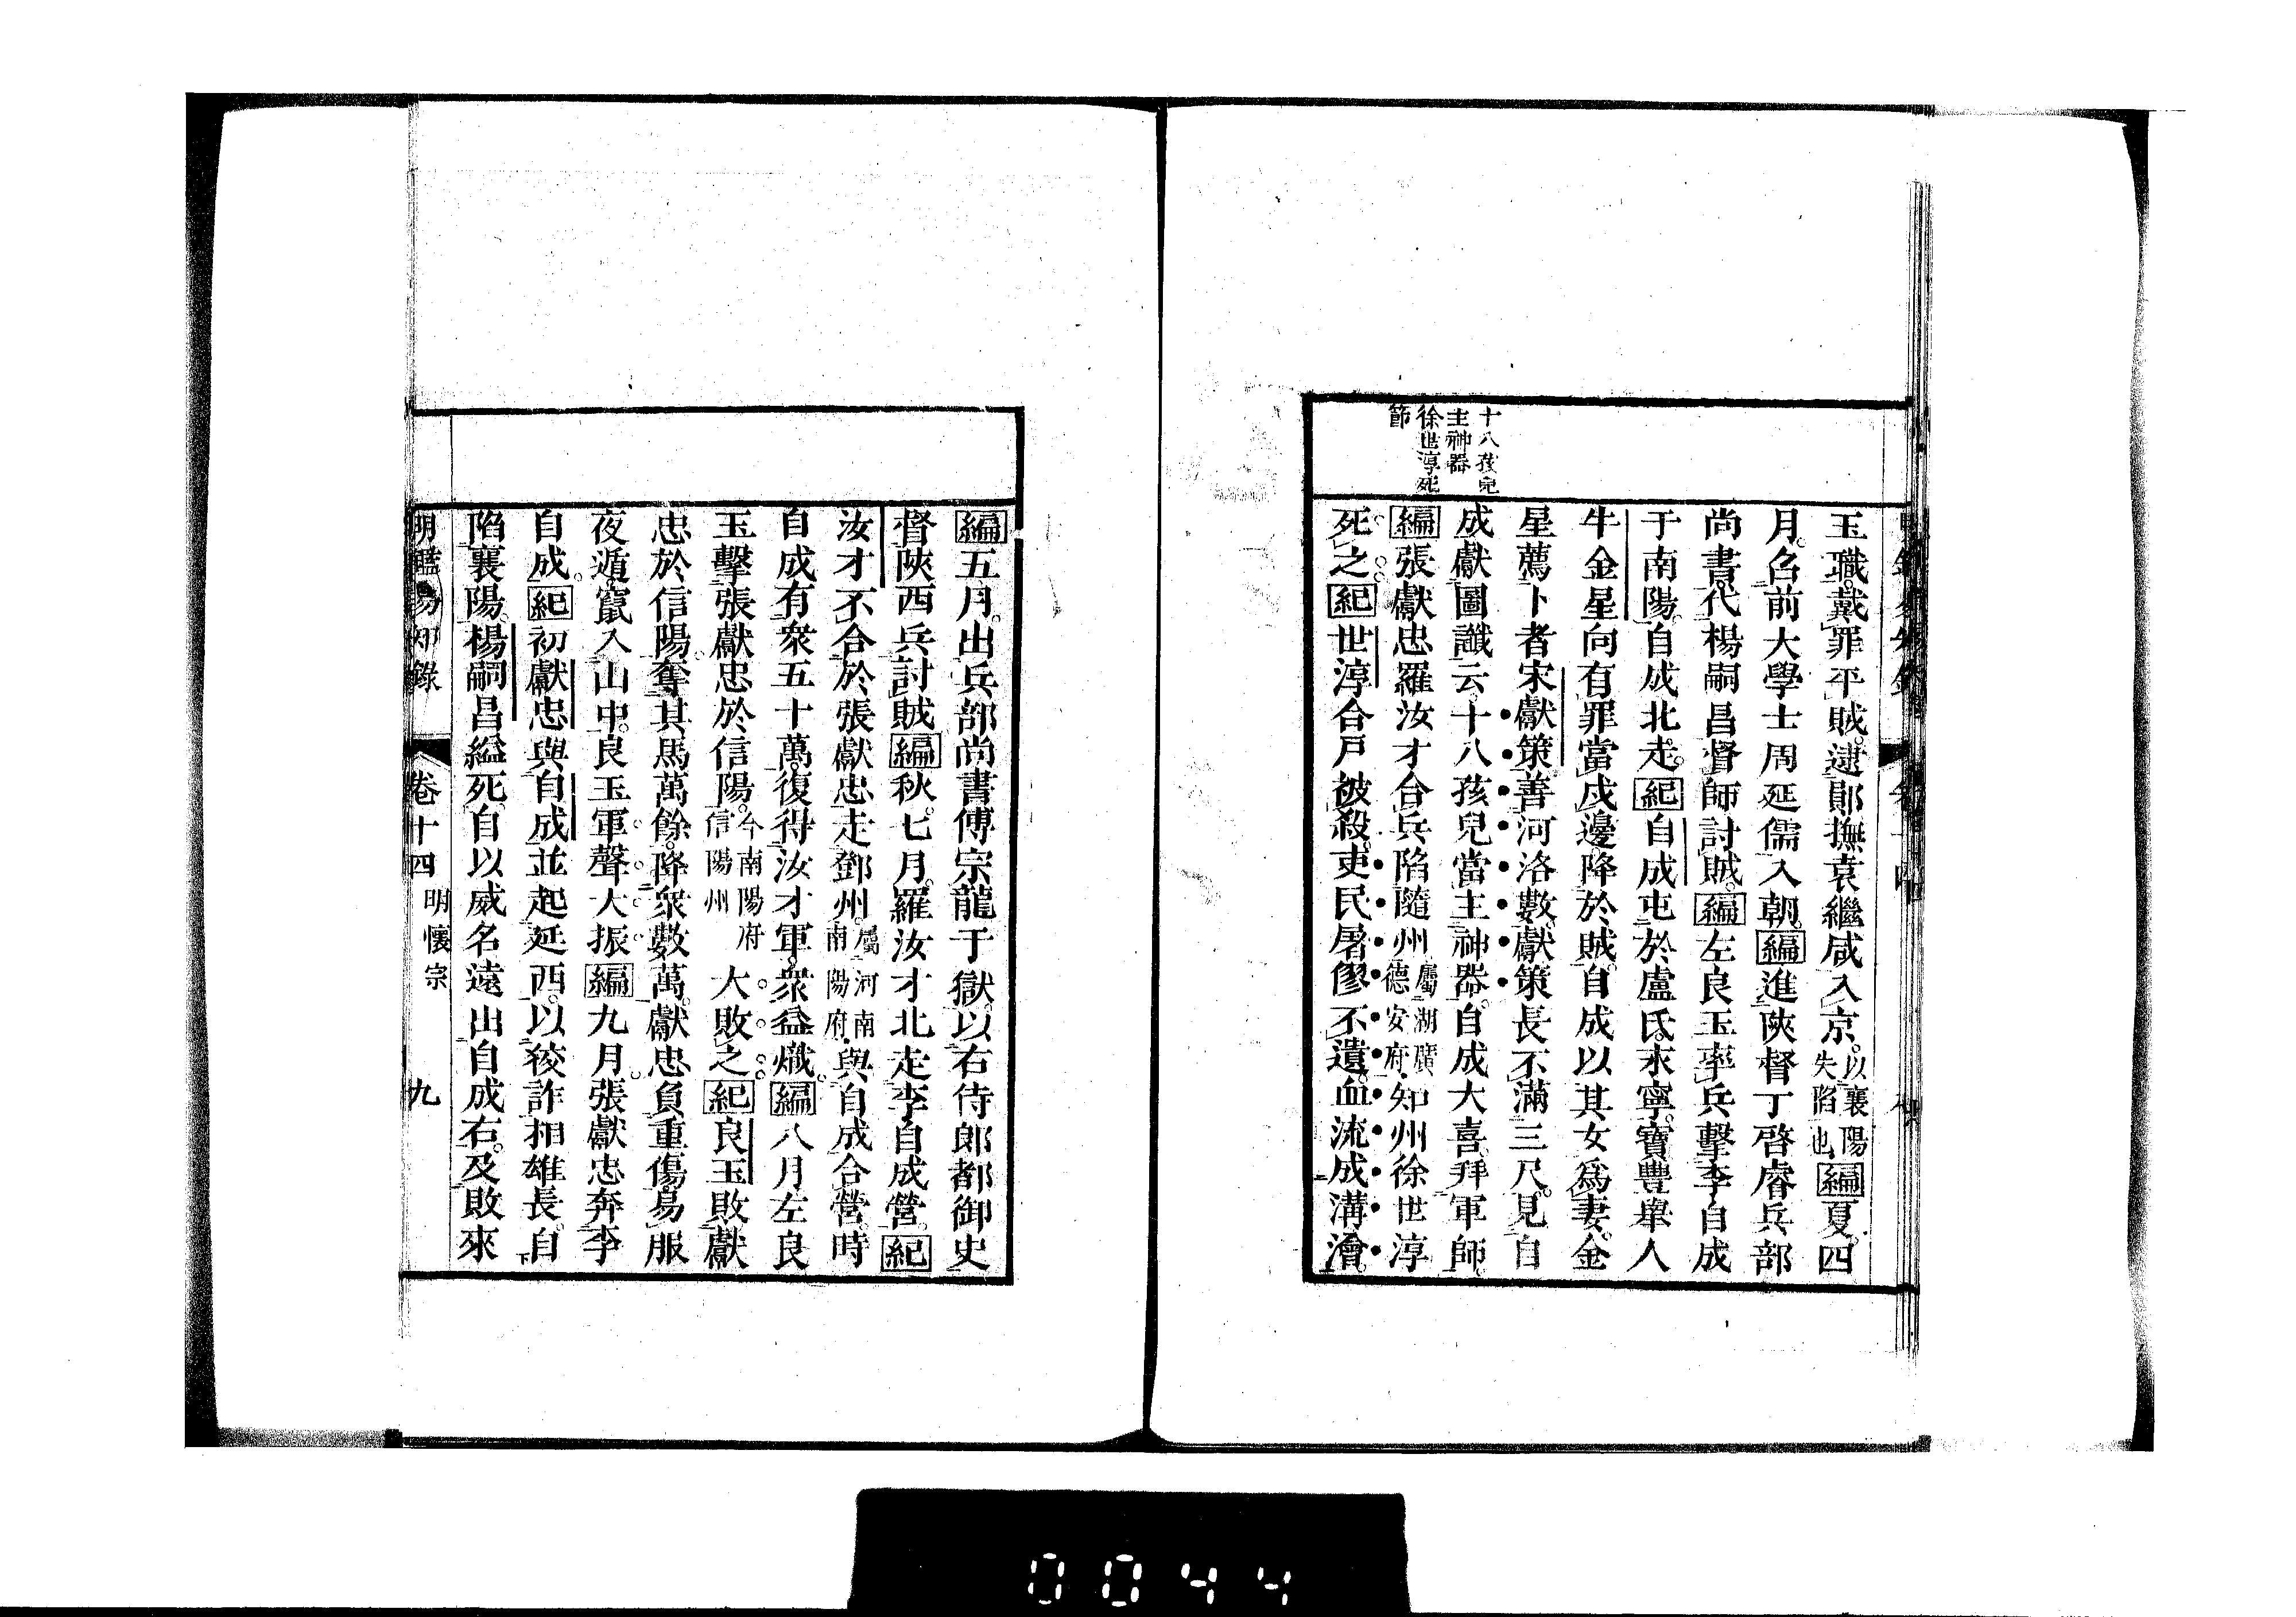 十八孩兒
主神器
徐世淳死
節
玉職。戴罪平賊。逮鄖撫袁繼咸入京。以襄陽失陷也編夏。四
月。召前大學士周延儒入朝。編進陝督丁啓睿兵部
尚書。代楊嗣昌督師討賊。編左良玉率兵擊李自成
于南陽。自成北走。紀自成屯於盧氏。永寧。寶豐舉人
牛金星向有罪當戍邊。降於賊。自成以其女爲妻。金
星薦卜者宋獻策。善河洛數。獻策長不滿三尺。見自
成獻圖讖云。十八孩兒當主神器。自成大喜。拜軍師。
編張獻忠羅汝才合兵陷隨州屬湖廣德安府。知州徐世淳
死之。紀世淳合戸被殺。吏民屠僇不遺。血流成溝澮。
編五月。出兵部尚書傅宗龍于獄。以右侍郎都御史
督陝西兵討賊編秋。七月。羅汝才北走李自成營。紀
汝才不合於張獻忠走鄧州。屬河南南陽府。與自成合營。時
自成有衆五十萬。復得汝才軍。衆益熾。編八月左良
玉擊張獻忠於信陽。今南陽府信陽州大敗之。紀良玉敗獻
忠於信陽。奪其馬萬餘。降衆數萬。獻忠負重傷。易服
夜遁。竄入山中。良玉軍聲大振。編九月。張獻忠奔李
自成。紀初獻忠與自成並起延西。以狡詐相雄長。自
陷襄陽。楊嗣昌縊死。自以威名遠出自成右。及敗來
明鑑易知錄 卷十四 明懷宗 九